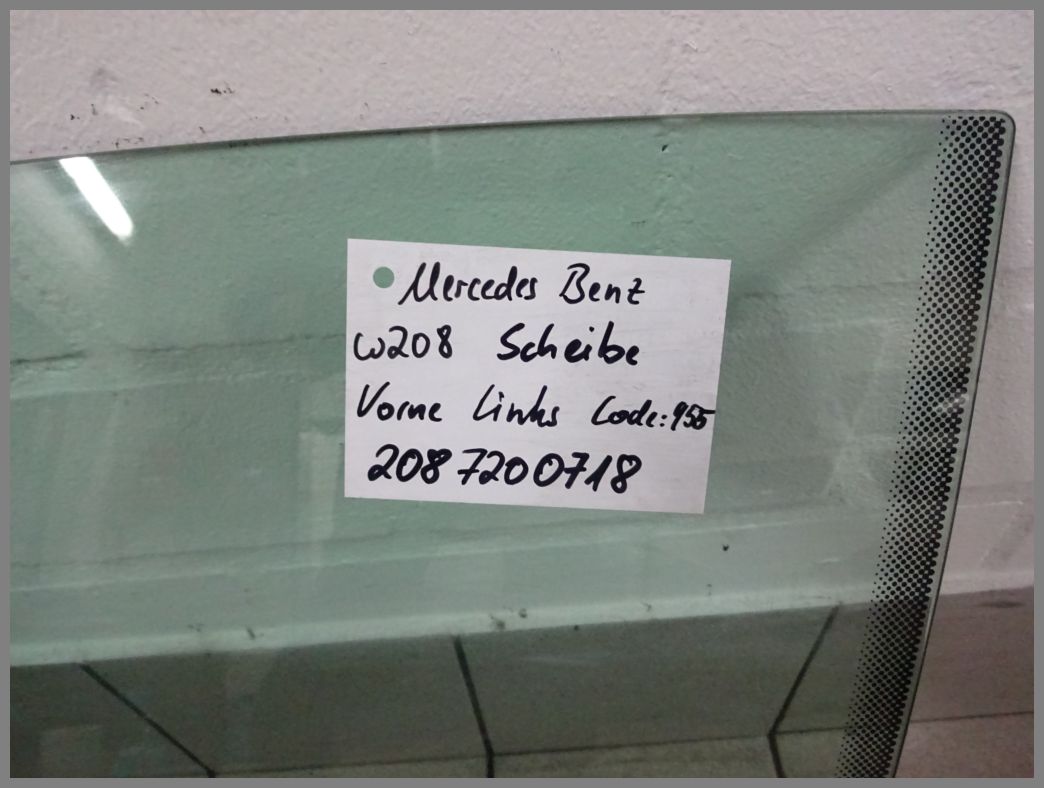 Mercedes Benz
W208 Scheibe
Vorne Links Code: 955
2087200718